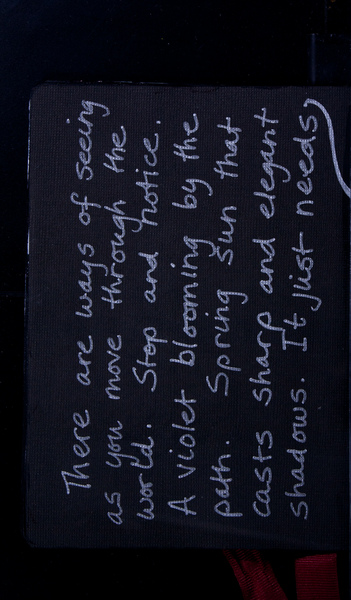 There are ways of seeing
as you move through the
world. Stop and notice.
A violet blooming by the
path. Spring sun that
casts sharp and elegant
shadows. It just needs